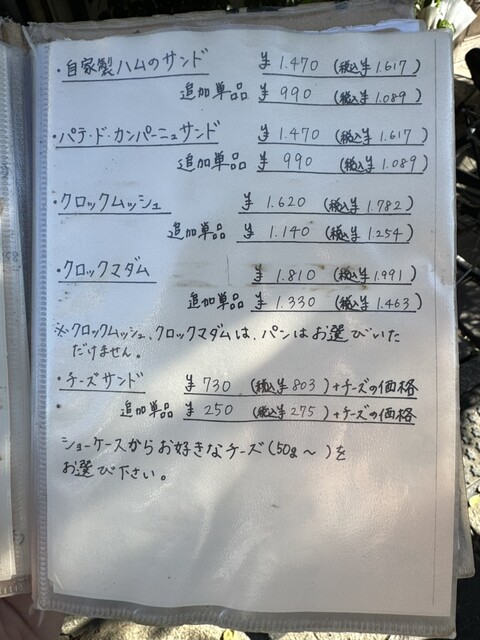 ・自家製ハムのサンド ¥1.470 (税込¥1.617)
追加単品 ¥990 (税込¥1.089)
・パテ・ド・カンパーニュサンド ¥1.470 (税込¥1.617)
追加単品 ¥990 (税込¥1.089)
・クロックムッシュ ¥1.620 (税込¥1.782)
追加単品 ¥1.140 (税込¥1.254)
・クロックマダム ¥1.810 (税込¥1.991)
追加単品 ¥1.330 (税込¥1.463)
※クロックムッシュ、クロックマダムは、パンはお選びいた
だけません。
・チーズサンド ¥730 (税込¥803)+チーズの価格
追加単品 ¥250 (税込¥275)+チーズの価格
ショーケースからお好きなチーズ(50g〜)を
お選び下さい。